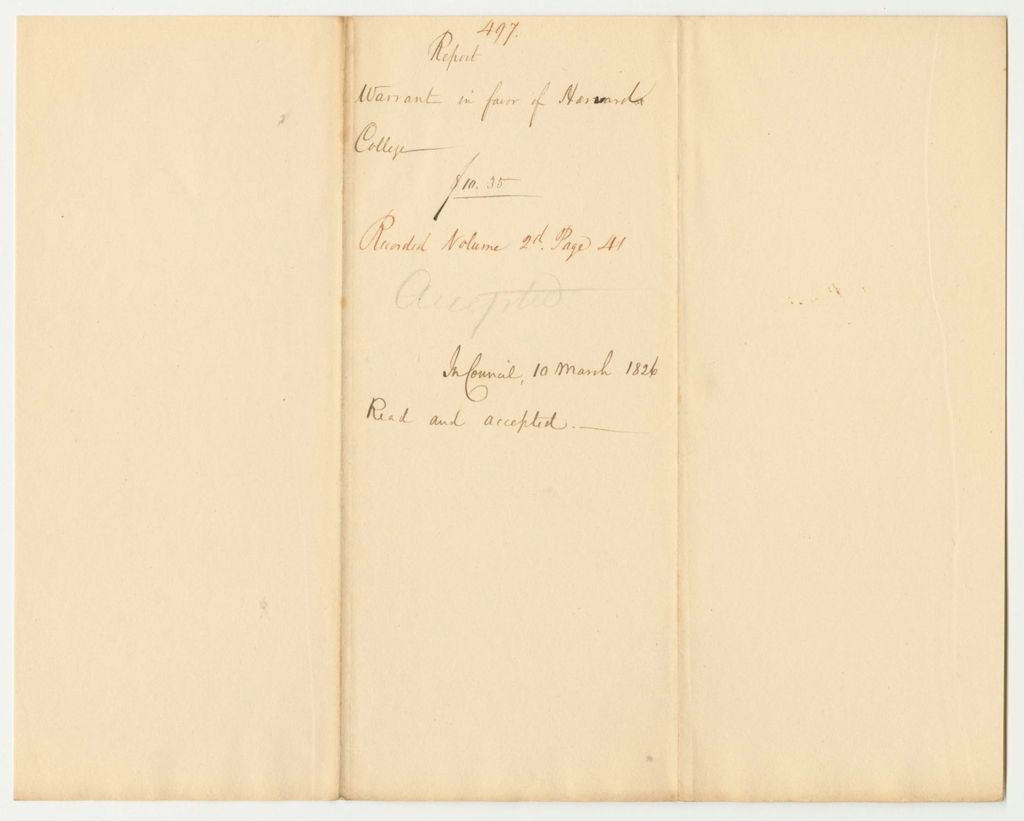 497.
Report
Warrant in favor of Harvard
College
$10.35
Recorded Volume 2d. Page 41
Accepted
In Council, 10 March 1826
Read and accepted.